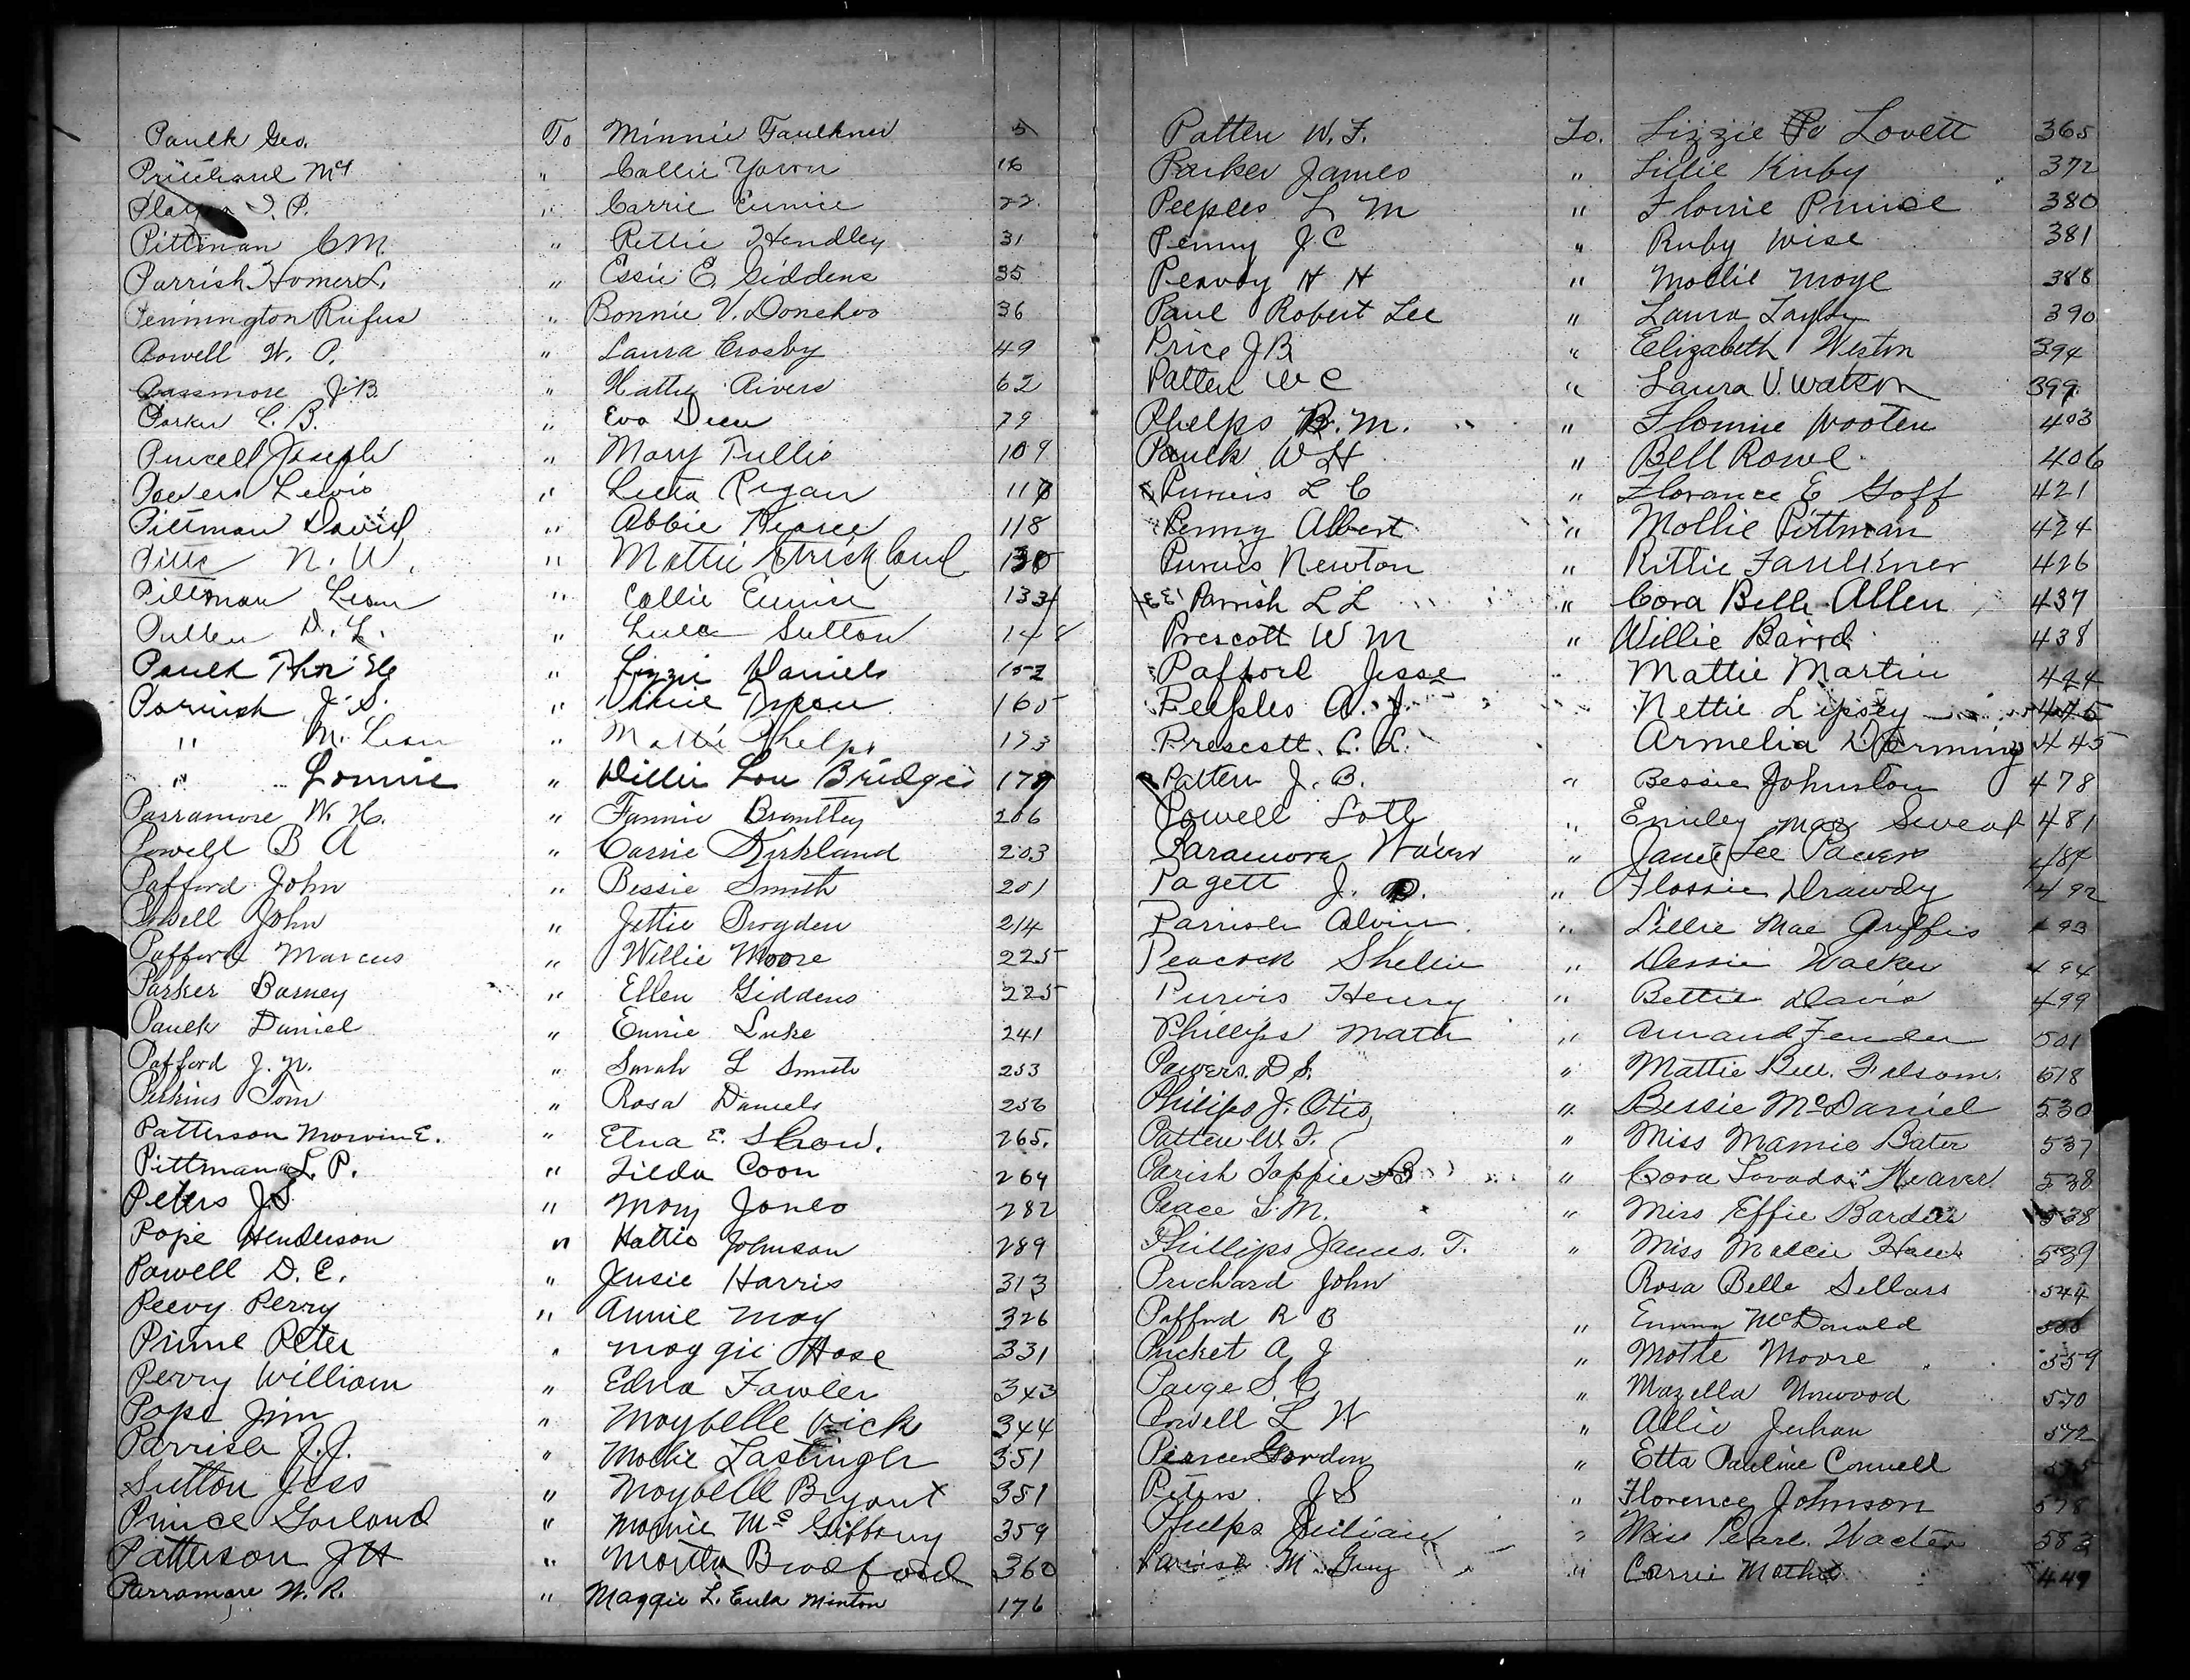 Paulk Geo. To Minnie Faulkner 5
Pritchard " Callie Yawn 16
I. P. " Carrie Eunice 22
Pittman C M. " Rettie Hendley 31
Parrish Homer L. " Essie E. Giddens 35
Pennington Rufus " Bonnie V. Donehoo 36
Powell W. P. " Laura Crosby 49
Passmore J. B. " Hattie Rivers 62
Parker C. B. " Eva Deen 79
Purcell Joseph " Mary Tullis 109
Powers Lewis " Regan
Pittman David " Abbie Pearce 118
Pitts N. W. " Mattie Strickland 130
Pittman Leon " Callie Eunice 133
Pullen D. L. " Lula Sutton 148
Paulk " Lizzie Daniels 152
Parrish J. S. " 165
" M. Leon " Mattie Phelps 173
" Lonnie " Willie Lou Bridges 179
Parramore W. H. " Fannie Brantley 206
Powell B A " Carrie Kirkland 203
Pafford John " Bessie Smith 201
Powell John " Jettie Brogden 214
Pafford Marcus " Willie Moore 225
Parker Barney " Ellen Giddens 225
Paulk Daniel " Eunie Luke 241
Pafford J. N. " Sarah L Smith 253
Perkins Tom " Rosa Daniels 256
Patterson Morvin E. " Etna E. Show. 265.
Pittman L. P. " Tilda Coon 269
Peters J S " Mary Jones 282
Pope Henderson " Hattie Johnson 289
Powell D. C. " Susie Harris 313
Peevy Perry " Annie May 326
Prime Peter " Maggie Hose 331
Perry William " Edna Fawler 343
Pope Jim " Maybelle Vick 344
Parrish J. J. " Mollie Lastinger 351
Sutton Jess " Maybelle Bryant 351
Prince Garland " Mamie 359
Patterson J H " Martha Bradford 360
Parramore W. R. " Maggie L. Eula Minton 176
Patten W. F. To. Lizzie Lovett 365
Parker James " Lillie Kirby 372
Peeples L M " Florrie Prince 380
Penny J. C " Ruby Wise 381
Peavey H H " Mollie Moye 388
Paul Robert Lee " Laura Taylor 390
Price J B " Elizabeth Weston 394
Patten W C " Laura V. Watson 399
Phelps B. M. " Flonnie Wooten 403
Paulk W H " Bell Rowe 406
Purvis L C " Florance E Goff 421
Penny Albert " Mollie Pittman 424
Purvis Newton " Rittie Faulkner 426
Parrish L L " Cora Belle Allen 437
Prescott W M " Willie Baird 438
Pafford Jesse " Mattie Martin 424
Peeples A. J. Nettie Lipsey 445
Prescott C. L. Armelia 445
Patten J. B. " Bessie Johnston 478
Powell " Emiley May Sweat 481
Paramore " Janie Lee 484
Pagett J. D. " Flossie Drawdy 492
Parrish Alvin " Lillie Mae Griffis 493
Peacock Shellie " Dessie Walker 494
Purvis Henry " Bettie Davis 499
Phillips Math " Amand Fender 501
Powers. D S. " Mattie Bell Folsom. 518
Philips J. Otis " Bessie McDaniel 530
Patten W. F. " Miss Mamie Bater 537
Parish Tappie B " Cora Weaver 538
Peace L. M. " Miss Effie Barden 538
Phillips James. T. " Miss 539
Prichard John Rosa Belle Sellars 544
Pafford R B " Emma McDonald
Pricket A J " Motte Moore 559
Paige S. C. " Mazella Norwood 570
Powell L W " Allie Julian 572
Pierce Gordon " Etta Pauline Connell
Peters J S " Florence Johnson 578
Phelps Julian " Miss Pearl 583
Parrish M. Guy " Carrie Mathis 449